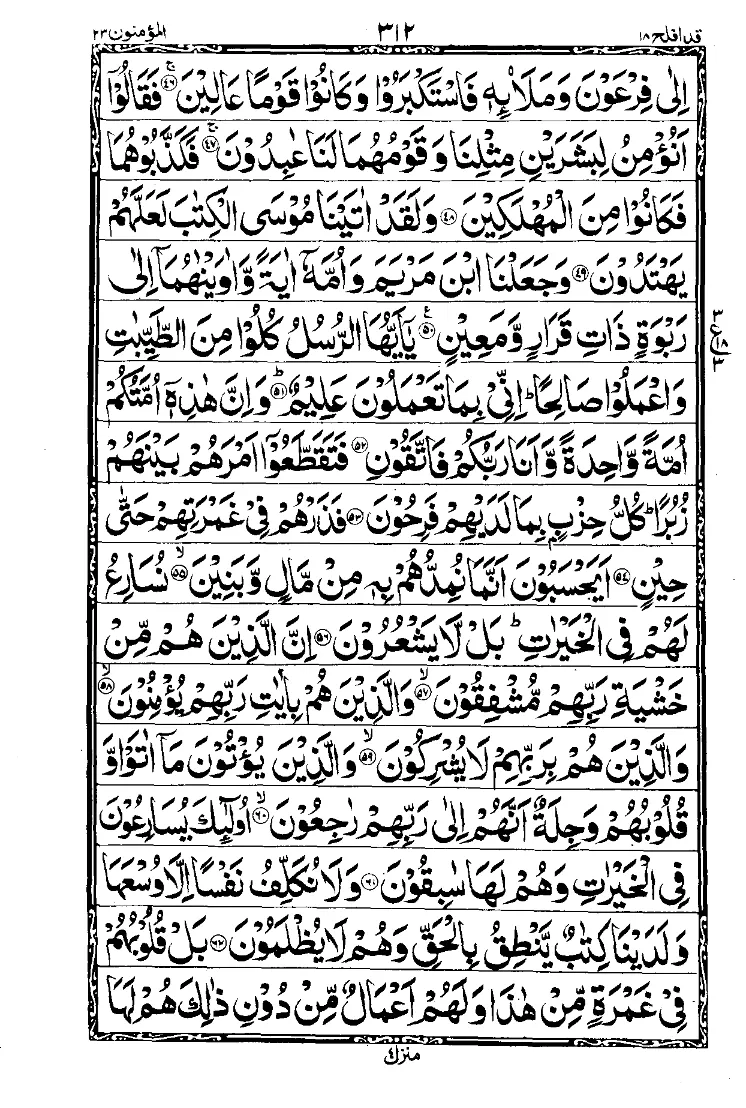 قد افلح ۱۸ ۳۱۲ المؤمنون ۲۳
اِلٰى فِرْعَوْنَ وَمَلَا۟ئِهٖ فَاسْتَكْبَرُوْا وَكَانُوْا قَوْمًا عَالِيْنَ ۚ‏﴿۴۶﴾ فَقَالُوْۤا
اَنُؤْمِنُ لِبَشَرَيْنِ مِثْلِنَا وَقَوْمُهُمَا لَنَا عٰبِدُوْنَ ۚ‏﴿۴۷﴾ فَكَذَّبُوْهُمَا
فَكَانُوْا مِنَ الْمُهْلَكِيْنَ ﴿۴۸﴾ وَلَقَدْ اٰتَيْنَا مُوْسَى الْكِتٰبَ لَعَلَّهُمْ
يَهْتَدُوْنَ ﴿۴۹﴾ وَجَعَلْنَا ابْنَ مَرْيَمَ وَاُمَّهٗۤ اٰيَةً وَّاٰوَيْنٰهُمَاۤ اِلٰى
رَبْوَةٍ ذَاتِ قَرَارٍ وَّمَعِيْنٍ ﴿۵۰﴾ ع يٰۤاَيُّهَا الرُّسُلُ كُلُوْا مِنَ الطَّيِّبٰتِ
وَاعْمَلُوْا صَالِحًا ؕ اِنِّىْ بِمَا تَعْمَلُوْنَ عَلِيْمٌ ؕ‏﴿۵۱﴾ وَاِنَّ هٰذِهٖۤ اُمَّتُكُمْ
اُمَّةً وَّاحِدَةً وَّاَنَا رَبُّكُمْ فَاتَّقُوْنِ ﴿۵۲﴾ فَتَقَطَّعُوْۤا اَمْرَهُمْ بَيْنَهُمْ
زُبُرًا ؕ كُلُّ حِزْبٍۭ بِمَا لَدَيْهِمْ فَرِحُوْنَ ﴿۵۳﴾ فَذَرْهُمْ فِىْ غَمْرَتِهِمْ حَتّٰى
حِيْنٍ ﴿۵۴﴾ اَيَحْسَبُوْنَ اَنَّمَا نُمِدُّهُمْ بِهٖ مِنْ مَّالٍ وَّبَنِيْنَ ۙ‏﴿۵۵﴾ نُسَارِعُ
لَهُمْ فِى الْخَيْرٰتِ ؕ بَلْ لَّا يَشْعُرُوْنَ ﴿۵۶﴾ اِنَّ الَّذِيْنَ هُمْ مِّنْ
خَشْيَةِ رَبِّهِمْ مُّشْفِقُوْنَ ۙ‏﴿۵۷﴾ وَالَّذِيْنَ هُمْ بِاٰيٰتِ رَبِّهِمْ يُؤْمِنُوْنَ ۙ‏﴿۵۸﴾
وَالَّذِيْنَ هُمْ بِرَبِّهِمْ لَا يُشْرِكُوْنَ ۙ‏﴿۵۹﴾ وَالَّذِيْنَ يُؤْتُوْنَ مَاۤ اٰتَوْا وَّ
قُلُوْبُهُمْ وَجِلَةٌ اَنَّهُمْ اِلٰى رَبِّهِمْ رٰجِعُوْنَ ۙ‏﴿۶۰﴾ اُولٰٓئِكَ يُسَارِعُوْنَ
فِى الْخَيْرٰتِ وَهُمْ لَهَا سٰبِقُوْنَ ﴿۶۱﴾ وَلَا نُكَلِّفُ نَفْسًا اِلَّا وُسْعَهَا
وَلَدَيْنَا كِتٰبٌ يَّنْطِقُ بِالْحَقِّ وَهُمْ لَا يُظْلَمُوْنَ ﴿۶۲﴾ بَلْ قُلُوْبُهُمْ
فِىْ غَمْرَةٍ مِّنْ هٰذَا وَلَهُمْ اَعْمَالٌ مِّنْ دُوْنِ ذٰلِكَ هُمْ لَهَا
۳ ع ۱۸ ۳
منزل ٤